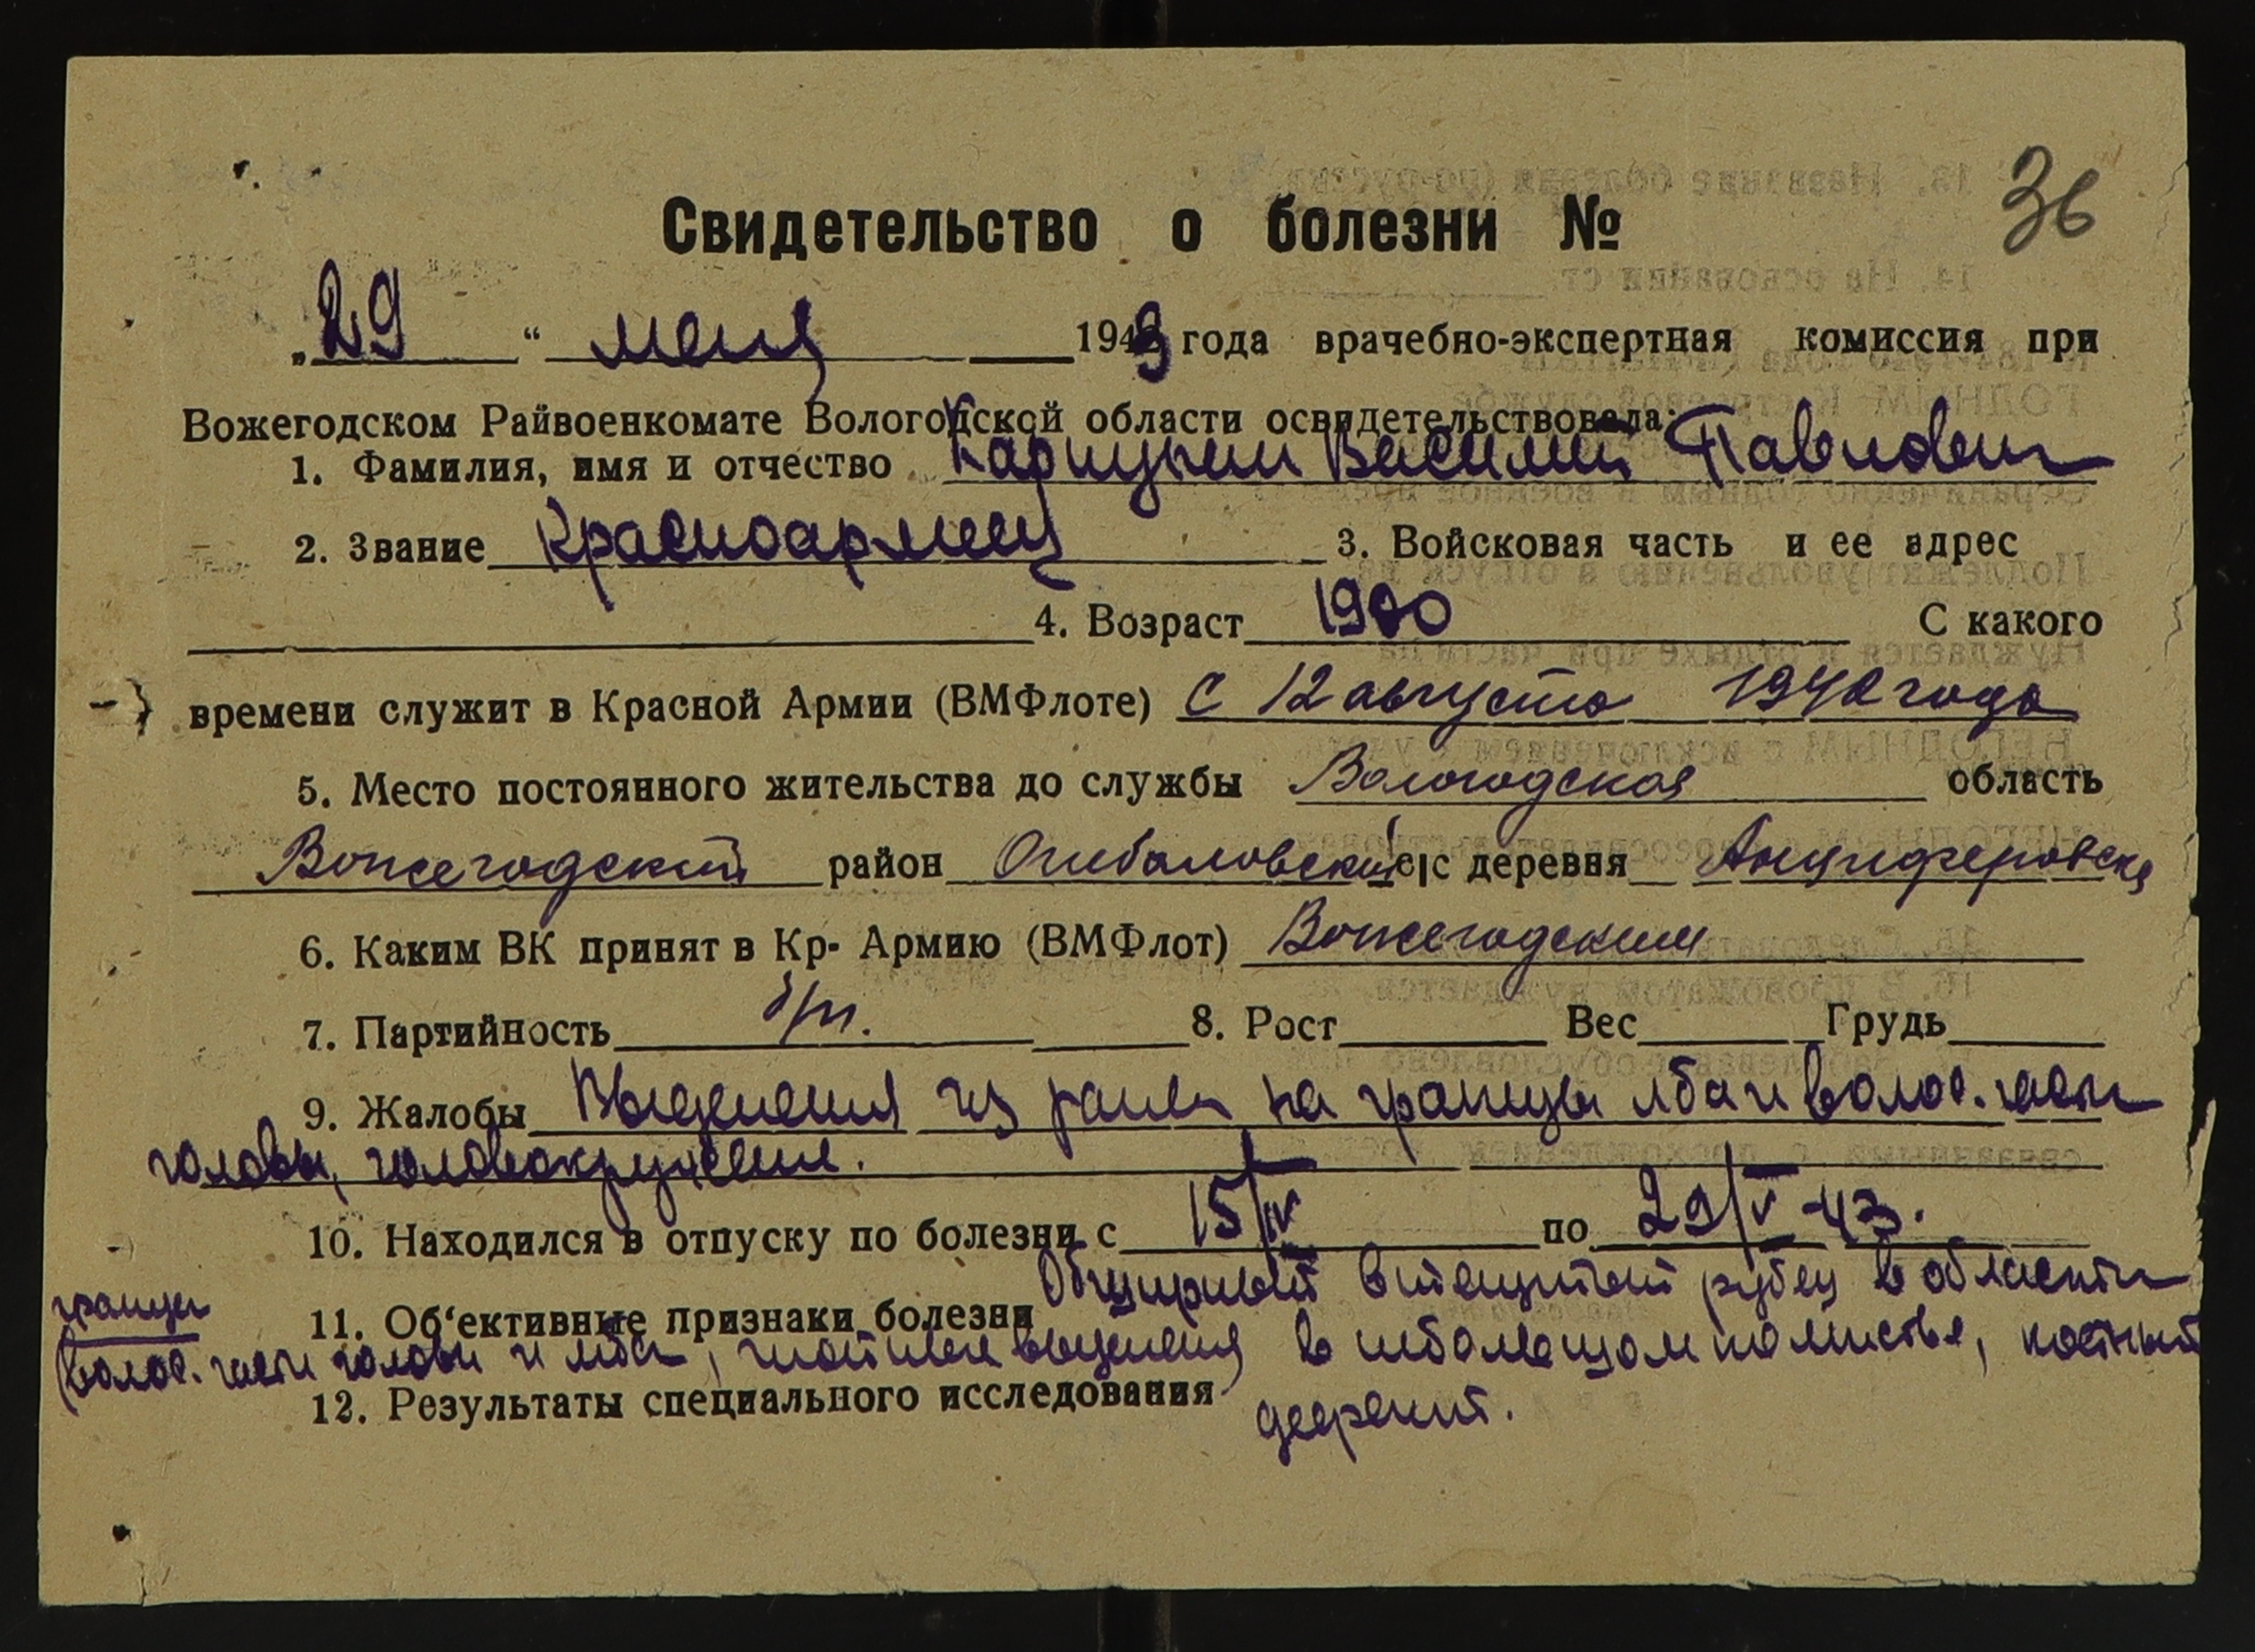 36
Свидетельство о болезни №
„29“ мая 1943 года врачебно-экспертная комиссия при
Вожегодском Райвоенкомате Вологодской области освидетельствовала:
1. Фамилия, имя и отчество Карпунин Василий Павлович
2. Звание Красноармеец 3. Войсковая часть и ее адрес
4. Возраст 1900 С какого
времени служит в Красной Армии (ВМФлоте) С 12 августа 1942 года
5. Место постоянного жительства до службы Вологодская область
Вожегодский район Огибаловский с|с деревня Анциферовска
6. Каким ВК принят в Кр- Армию (ВМФлот) Вожегодским
7. Партийность б/п. 8. Рост Вес Грудь
9. Жалобы Выделения из раны на границы лба и волос. части
головы, головокружения.
10. Находился в отпуску по болезни с 15/IV по 29/V-43.
11. Об‘ективные признаки болезни Обширный втянутый рубец в области
границы
волос. части головы и лба, гнойные выделения в небольшом количестве, костный
12. Результаты специального исследования дефект.